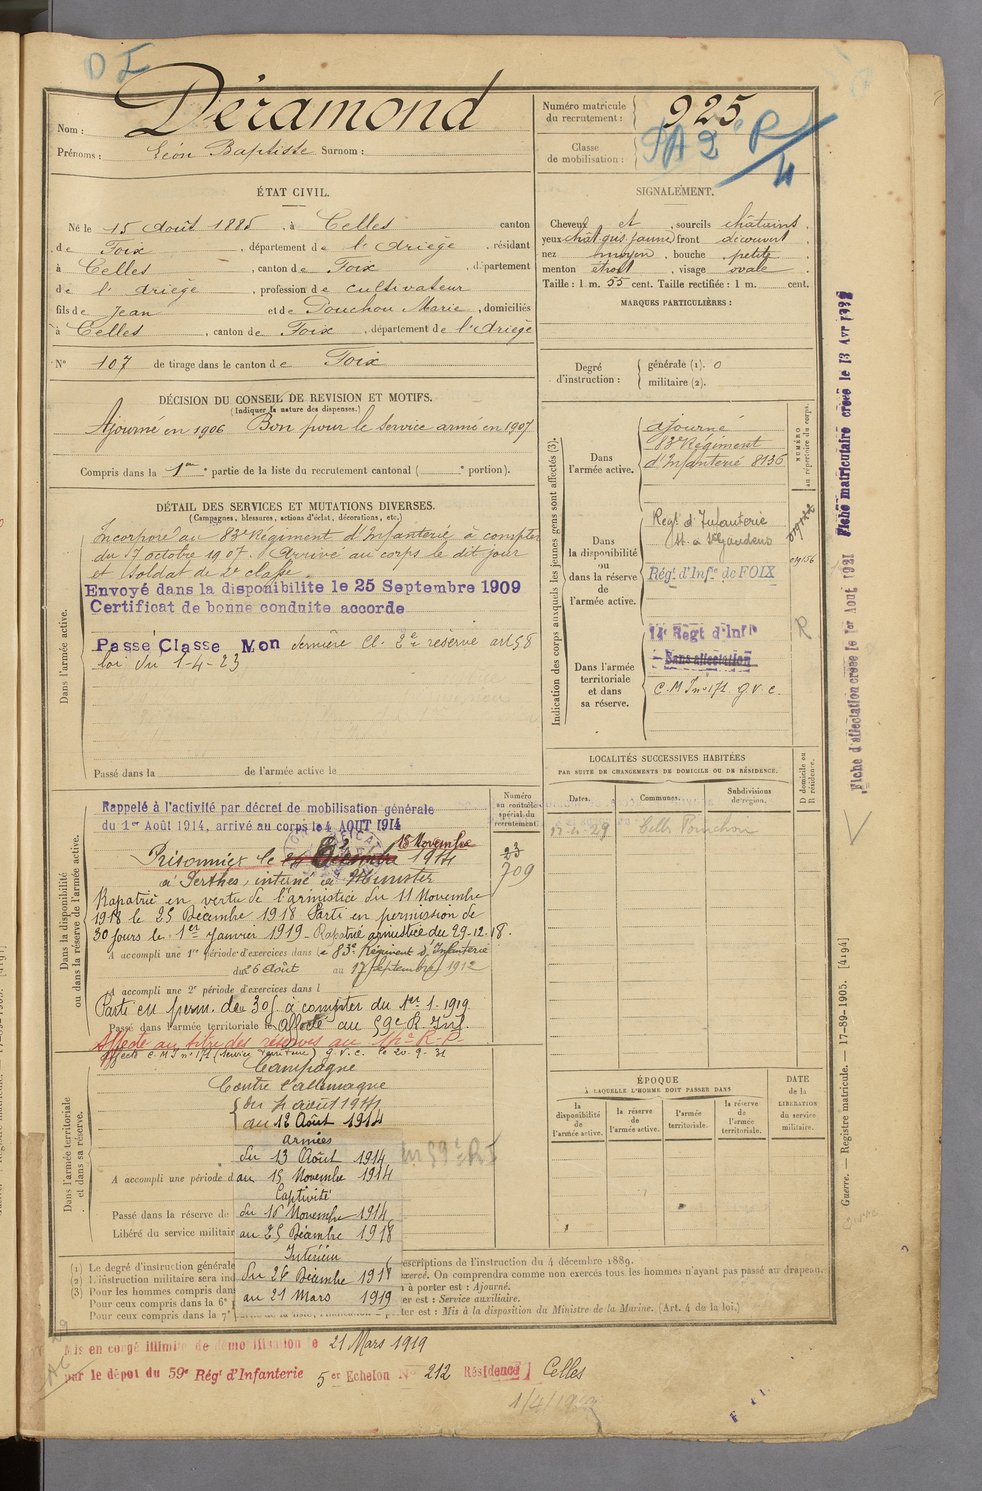 D F
Déramond
Nom :
Prénoms : Léon Baptiste Surnom :
Numéro matricule du recrutement : 925
Classe de mobilisation : PA 2° R/4
ÉTAT CIVIL.
Né le 15 Août 1885, à Celles canton
de Foix, département de l'Ariège, résidant
à Celles, canton de Foix, département
de l'Ariège, profession de cultivateur
fils de Jean et de Pouchou Marie, domiciliés
à Celles, canton de Foix, département de l'Ariège
N° 107 de tirage dans le canton de Foix
SIGNALEMENT.
Cheveux et, sourcils châtains.
yeux front découvert
nez moyen, bouche petite
menton étroit, visage ovale.
Taille : 1 m. 55 cent. Taille rectifiée : 1 m. cent.
MARQUES PARTICULIÈRES :
Degré d'instruction : générale (1). 0
militaire (2).
DÉCISION DU CONSEIL DE REVISION ET MOTIFS.
(Indiquer la nature des dispenses.)
Ajourné en 1906 Bon pour le service armé en 1907
Compris dans la 1re partie de la liste du recrutement cantonal ( e portion).
DÉTAIL DES SERVICES ET MUTATIONS DIVERSES.
(Campagnes, blessures, actions d'éclat, décorations, etc.)
Dans l'armée active.
Incorporé au 83e Régiment d'Infanterie à compter
du 7 octobre 1907. Arrivé au corps le dit jour
et soldat de 2e classe.
Envoyé dans la disponibilite le 25 Septembre 1909
Certificat de bonne conduite accorde
Passé Classe Mon dernière Cl. 2e réserve art 58
loi du 1-4-23
Passé dans la de l'armée active le
Indication des corps auxquels les jeunes gens sont affectés (3).
NUMÉRO au répertoire du corps.
Dans l'armée active.
ajourné
83e Régiment
d'Infanterie 8136
Dans la disponibilité ou dans la réserve de l'armée active.
Regt d'Infanterie
St. à St Gaudens
Régt d'Infie de FOIX
R
Dans l'armée territoriale et dans sa réserve.
14e Regt d'Infie
Sans affectation
C.M In° 171 g.v.c.
LOCALITÉS SUCCESSIVES HABITÉES
PAR SUITE DE CHANGEMENTS DE DOMICILE OU DE RÉSIDENCE.
D domicile ou R résidence.
Dates. Communes. Subdivisions de région.
Dans la disponibilité ou dans la réserve de l'armée active.
Numéro au contrôle spécial du recrutement.
23
709
Rappelé à l'activité par décret de mobilisation générale
du 1er Août 1914, arrivé au corps le 4 AOUT 1914
15 Novembre
Prisonnier le 1914
à Perthes, interné à Munster
Rapatrié en vertu de l'armistice du 11 Novembre
1918 le 25 Décembre 1918 Parti en permission de
30 jours le 1er Janvier 1919 - Rapatrié armistice du 29-12-18.
A accompli une 1re période d'exercices dans le 83e Régiment d'Infanterie
du 26 Août au 17 Septembre 1912
A accompli une 2e période d'exercices dans l
Parti en perm. de 30 j à compter du 1er 1. 1919.
Passé dans l'armée territoriale le Affecté au 59e R. Inf.
Affecté au titre des réserves au
affecté C.M I n° 171 (service territorial) g.v.c. le 20-9-31
Dans l'armée territoriale et dans sa réserve.
Campagne
Contre l'allemagne
du 4 août 1914
au 12 Août 1914
armées
du 13 Août 1914
A accompli une période d au 15 Novembre 1914
Captivité
Passé dans la réserve de du 16 Novembre 1914
Libéré du service militair au 25 Décembre 1918
Intérieur
du 26 Décembre 1918
au 21 Mars 1919
ÉPOQUE
À LAQUELLE L'HOMME DOIT PASSER DANS
DATE de la LIBÉRATION du service militaire.
la disponibilité de l'armée active.
la réserve de l'armée active.
l'armée territoriale.
la réserve de l'armée territoriale.
(1) Le degré d'instruction générale escriptions de l'instruction du 4 décembre 1889.
(2) L'instruction militaire sera ind exercé. On comprendra comme non exercés tous les hommes n'ayant pas passé au drapeau.
(3) Pour les hommes compris dans n à porter est : Ajourné.
Pour ceux compris dans la 6e ter est : Service auxiliaire.
Pour ceux compris dans la 7e ter est : Mis à la disposition du Ministre de la Marine. (Art. 4 de la loi.)
Mis en congé illimité de démobilisation le 21 Mars 1919
par le dépot du 59e Régt d'Infanterie 5er Echelon N° 212 Résidence Celles
Fiche d'affectation creee le 1er Aout 1921 Fiche matriculaire creee le 13 Avr
Guerre. — Registre matricule. — 17-89-1905. [4194]